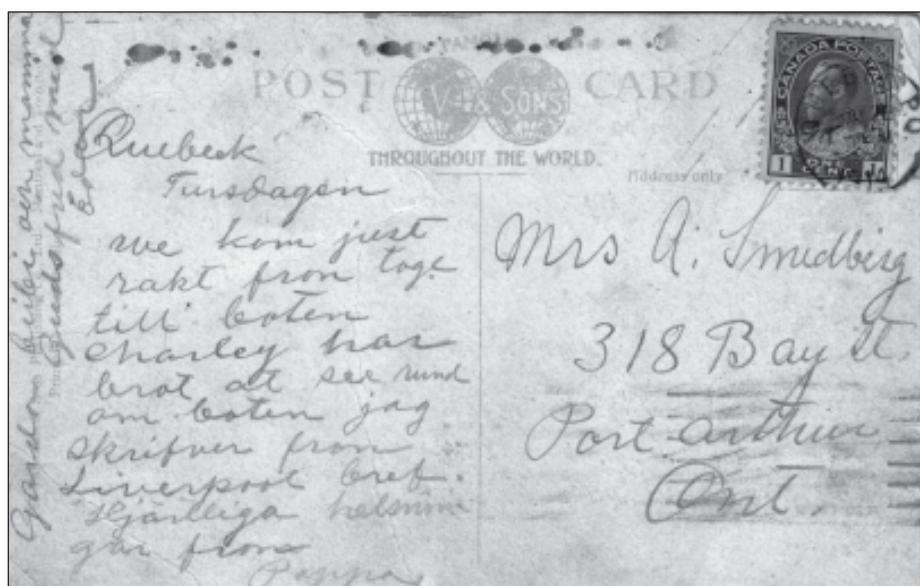 POST CARD
V & SONS
THROUGHOUT THE WORLD.
Address only
CANADA POSTAGE
1 ONE CENT 1
Quebeck
Tursdagen
we kom just
rakt fron toge
till boten
Charley har
brot at see rund
om boten jag
skrifver from
Liverpool bref.
Hjärtliga helsnin
gar from
Pappa
mamma
Guds frid med
Eder
Mrs A. Smedberg
318 Bay St.
Port Arthur
Ont.